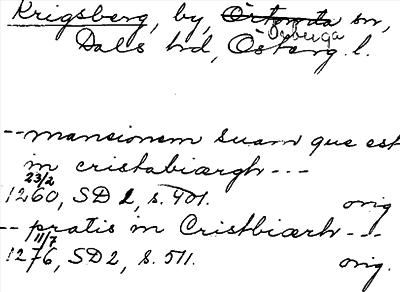 Krigsberg, by, Örtomta sn,
Örberga
Dals hd, Österg. l.
-- mansionem suam que est
in cristabiærgh ---
23/2
1260, SD 1, s. 401. orig
-- pratis in Cristbiærh ---
11/7
1276, SD 2, s. 511. orig.